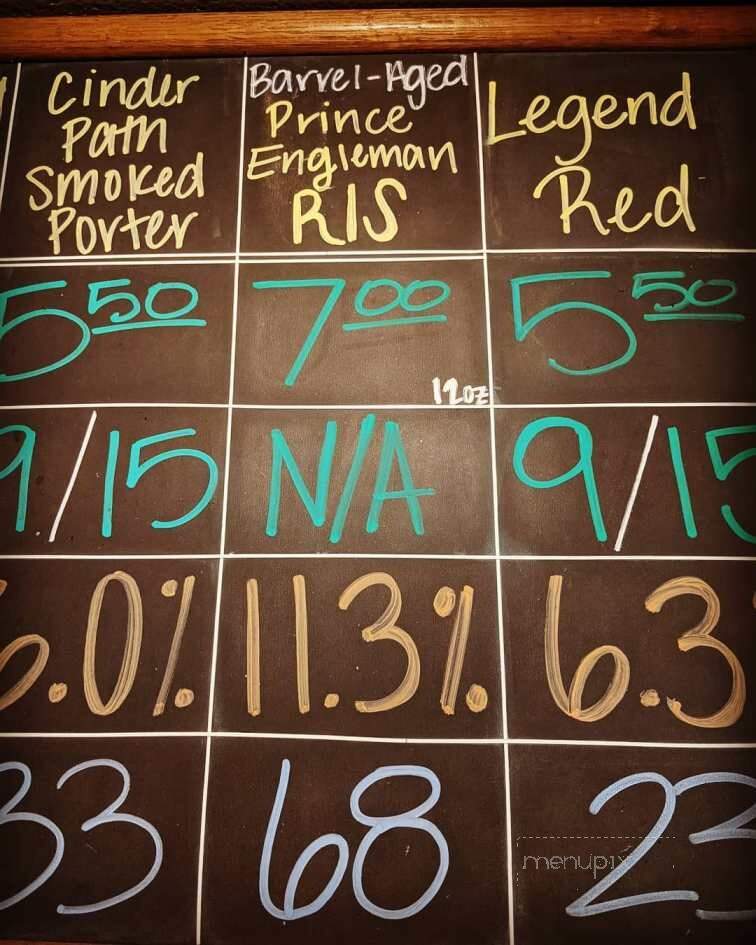 Cinder
Path
Smoked
Porter
Barrel-Aged
Prince
Engleman
RIS
Legend
Red
5 50
7 00
12oz
5 50
9/15
N/A
9/15
6.0%
11.3%
6.3
33
68
23
menupix